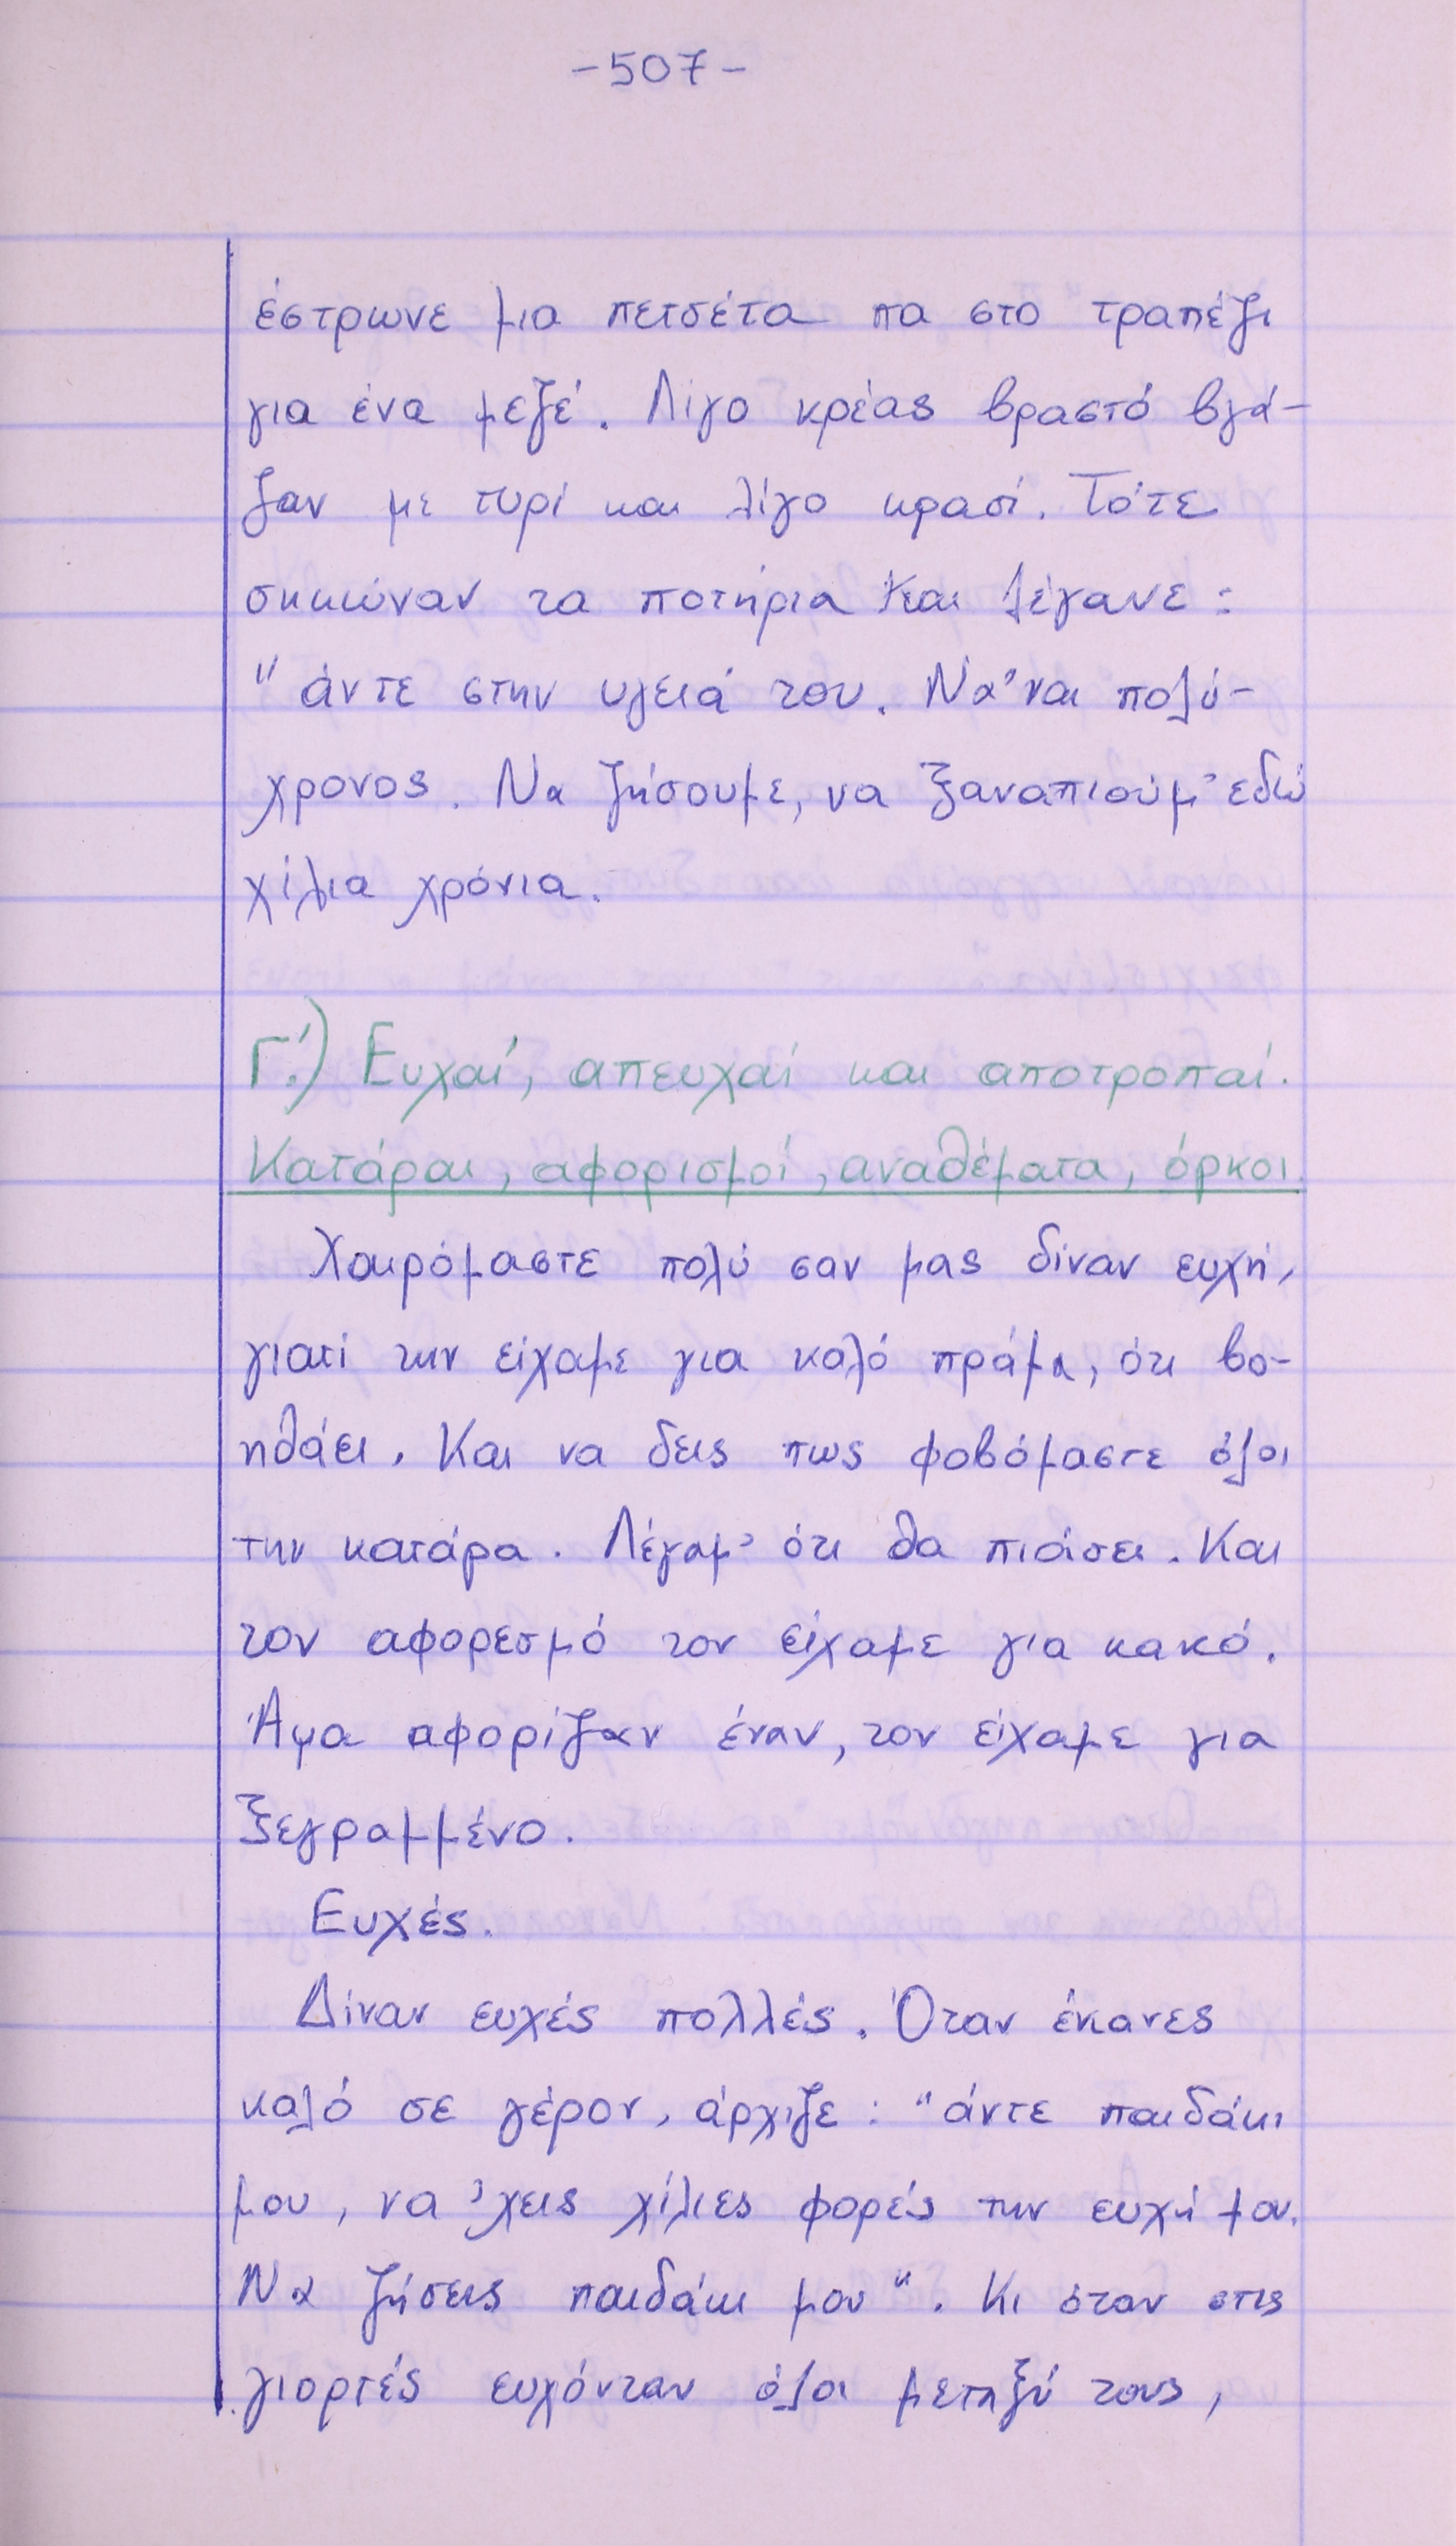 -507-
έστρωνε μια πετσέτα πα στο τραπέζι
για ένα μεζέ. Λίγο κρέας βραστό βγά-
ζαν με τυρί και λίγο κρασί. Τότε
σηκώναν τα ποτήρια και λέγανε:
"άντε στην υγειά του. Νά'ναι πολύ-
χρονος. Να ζήσουμε, να ξαναπιούμ' εδώ
χίλια χρόνια.
Γ΄.) Ευχαί, απευχαί και αποτροπαί.
Κατάραι, αφορισμοί, αναθέματα, όρκοι.
Χαιρόμαστε πολύ σαν μας δίναν ευχή,
γιατί την είχαμε για καλό πράμα, ότι βο-
ηθάει. Και να δεις πως φοβόμαστε όλοι
την κατάρα. Λέγαμ' ότι θα πιάσει. Και
τον αφορεσμό τον είχαμε για κακό.
Άμα αφορίζαν έναν, τον είχαμε για
ξεγραμμένο.
Ευχές.
Δίναν ευχές πολλές. Όταν έκανες
καλό σε γέρον, άρχιζε: "άντε παιδάκι
μου, να 'χεις χίλιες φορές την ευχή μου.
Να ζήσεις παιδάκι μου". Κι όταν στις
γιορτές ευχόνταν όλοι μεταξύ τους,